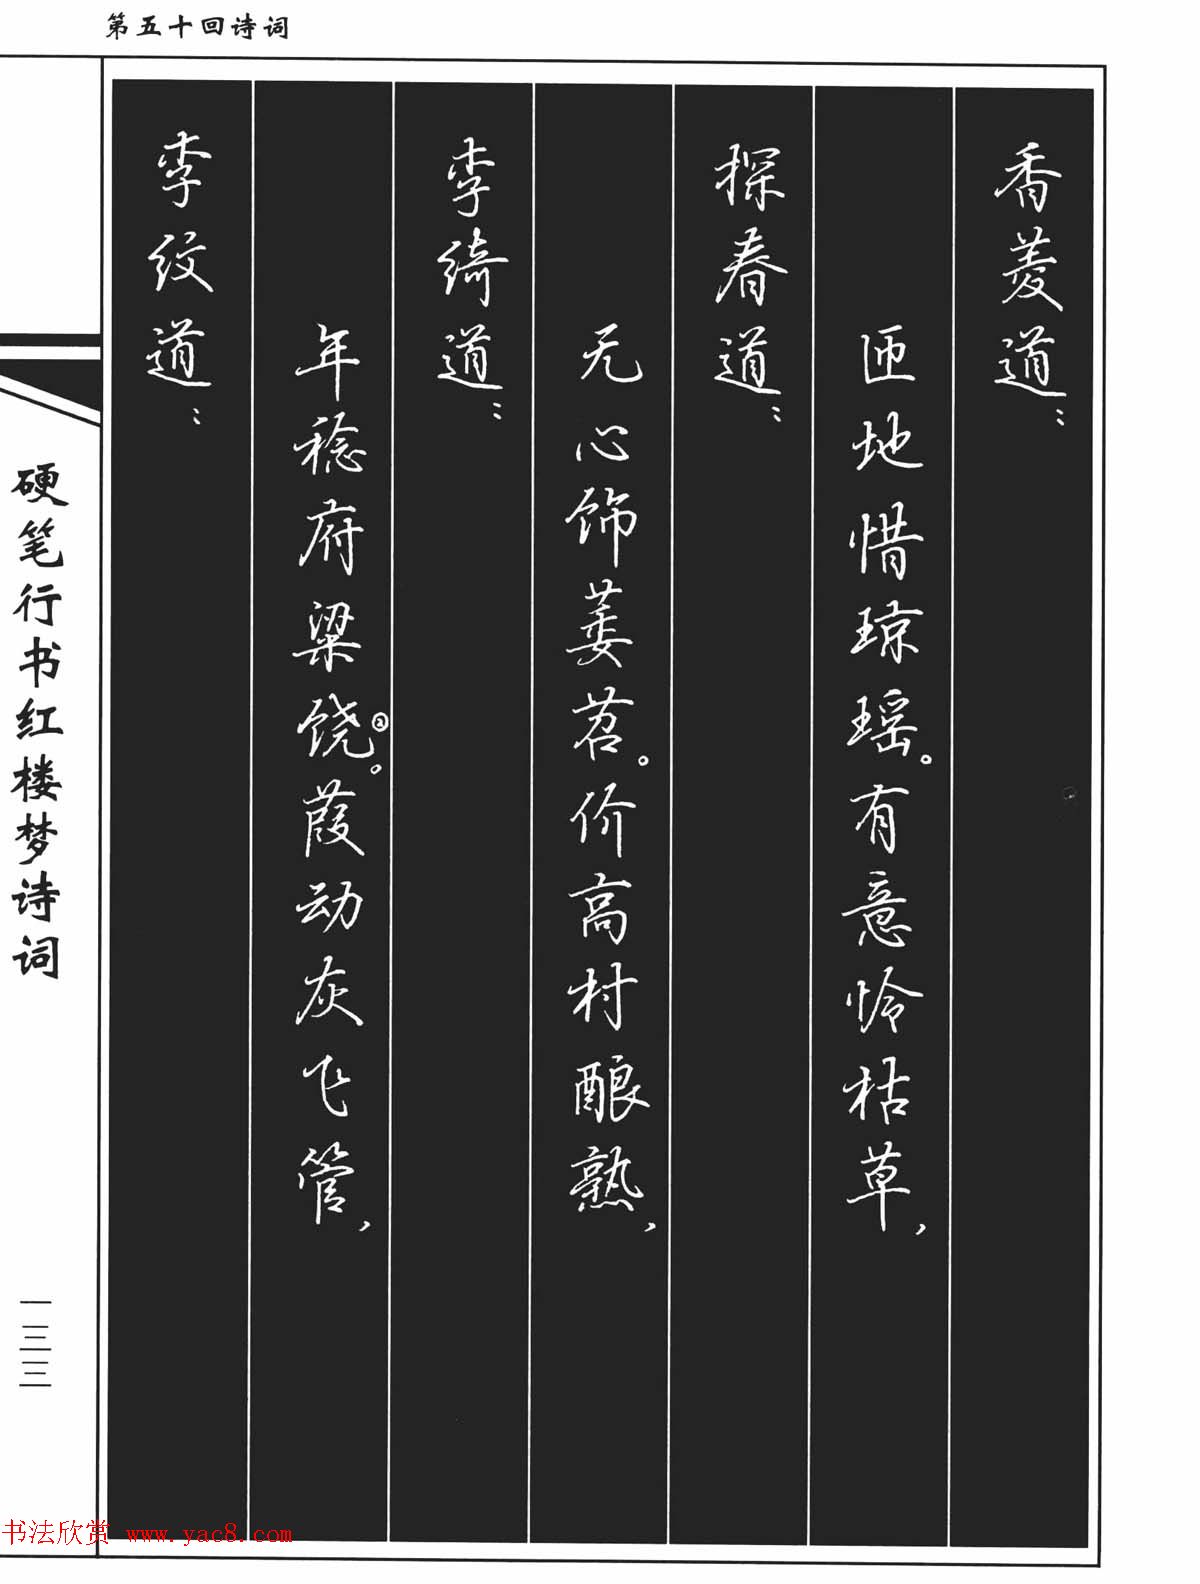 第五十回诗词
香菱道：
匝地惜琼瑶。有意怜枯草，
探春道：
无心饰萎苕。价高村酿熟，
李绮道：
年稔府粱饶②。葭动灰飞管，
李纹道：
硬笔行书红楼梦诗词
一三三
书法欣赏 www.yac8.com